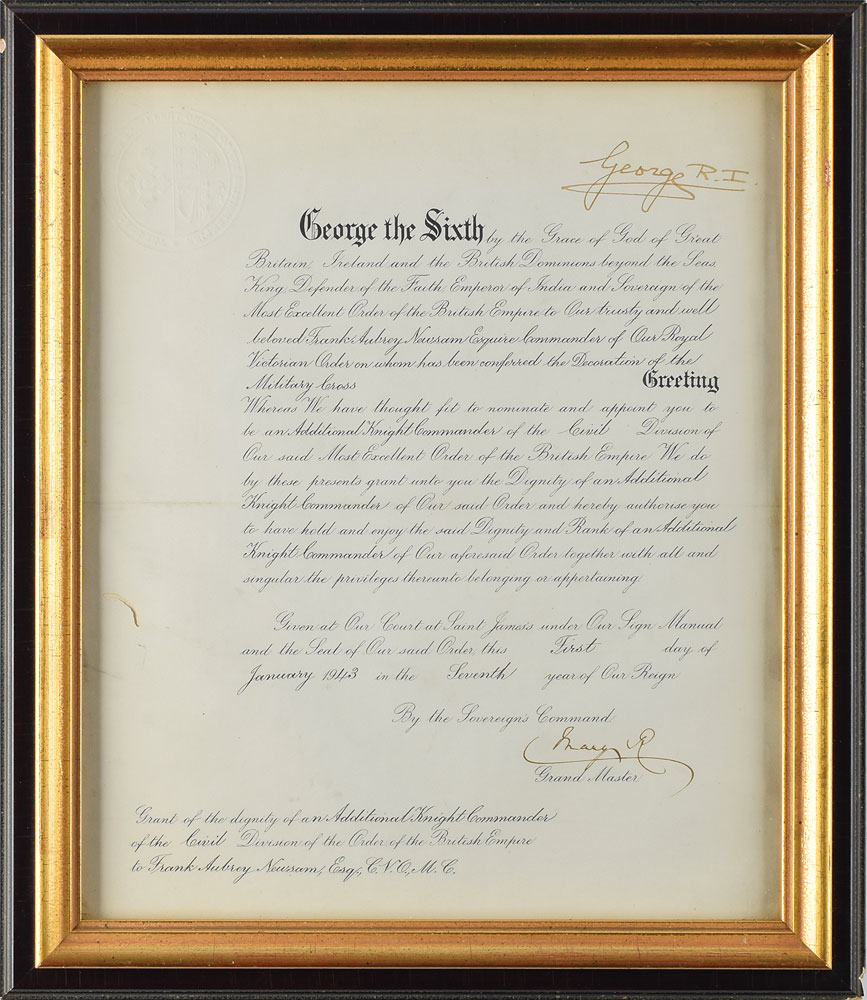 George R.I.
George the Sixth by the Grace of God of Great
Britain, Ireland and the British Dominions beyond the Seas,
King, Defender of the Faith, Emperor of India and Sovereign of the
Most Excellent Order of the British Empire to Our trusty and well
beloved Frank Aubrey Newsam Esquire Commander of Our Royal
Victorian Order on whom has been conferred the Decoration of the
Military Cross Greeting
Whereas We have thought fit to nominate and appoint you to
be an Additional Knight Commander of the Civil Division of
Our said Most Excellent Order of the British Empire We do
by these presents grant unto you the Dignity of an Additional
Knight Commander of Our said Order and hereby authorise you
to have hold and enjoy the said Dignity and Rank of an Additional
Knight Commander of Our aforesaid Order together with all and
singular the privileges thereunto belonging or appertaining.
Given at Our Court at Saint James's under Our Sign Manual
and the Seal of Our said Order this First day of
January 1943 in the Seventh year of Our Reign
By the Sovereign's Command.
Mary R
Grand Master.
Grant of the dignity of an Additional Knight Commander
of the Civil Division of the Order of the British Empire
to Frank Aubrey Newsam, Esq., C.V.O., M.C.